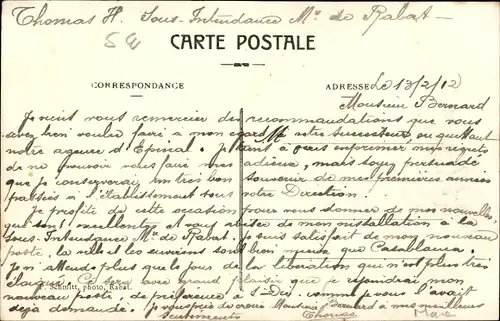 Thomas H. Sous-Intendance Mre de Rabat
CARTE POSTALE
CORRESPONDANCE
ADRESSE
Le 13/2/12
Monsieur Bernard
Je viens vous remercier des recommandations que vous
avez bien voulu faire à mon égard à votre successeur en quittant
notre agence d'Epinal. Je tiens à vous exprimer mes regrets
de ne pouvoir vous faire mes adieux, mais soyez persuadé
que je conserverai un très bon souvenir de mes premières années
passées à l'établissement sous votre Direction.
Je profite de cette occasion pour vous donner de mes nouvelles
qui sont excellentes et vous aviser de mon installation à la
Sous-Intendance Mre de Rabat. Je suis satisfait de mon nouveau
poste, la ville et les environs sont bien mieux que Casablanca.
Je n'attends plus que le jour de la libération qui n'est plus très
Ce sera avec grand plaisir que je rejoindrai mon
nouveau poste, de préférence à comme je vous l'avais
déjà demandé. Je vous de vous Monsieur Bernard à mes meilleurs
sentiments
Thomas
Schmitt, photo, Rabat.
Maroc